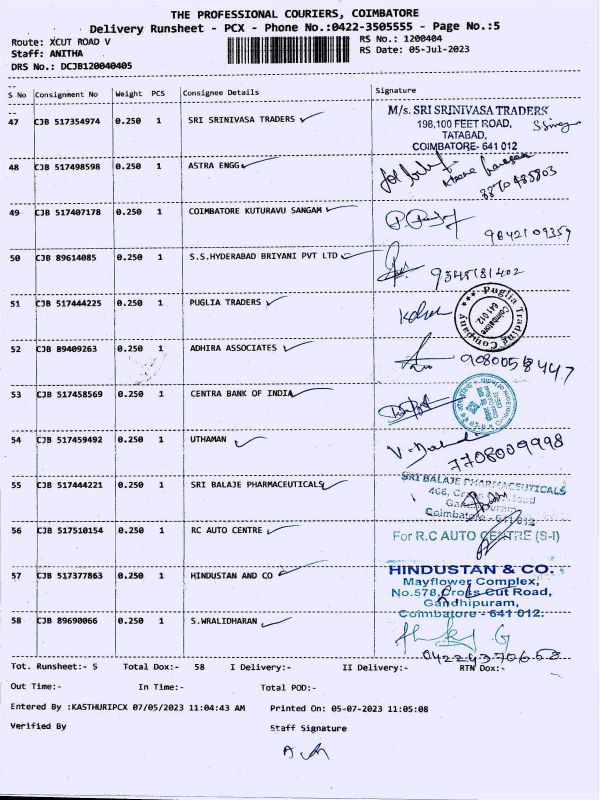 THE PROFESSIONAL COURIERS, COIMBATORE
Delivery Runsheet - PCX - Phone No.:0422-3505555 - Page No.:5
Route: XCUT ROAD V
RS No.: 1200404
Staff: ANITHA
RS Date: 05-Jul-2023
DRS No.: DCJB120040405
S No Consignment No Weight PCS Consignee Details Signature
47 CJB 517354974 0.250 1 SRI SRINIVASA TRADERS
M/s. SRI SRINIVASA TRADERS
198,100 FEET ROAD,
TATABAD,
COIMBATORE- 641 012
48 CJB 517498598 0.250 1 ASTRA ENGG
49 CJB 517407178 0.250 1 COIMBATORE KUTURAVU SANGAM
9842109359
50 CJB 89614085 0.250 1 S.S.HYDERABAD BRIYANI PVT LTD
9345181402
51 CJB 517444225 0.250 1 PUGLIA TRADERS
Puglia Trading Company
Coimbatore
641 012
52 CJB 89409263 0.250 1 ADHIRA ASSOCIATES
9080058447
53 CJB 517458569 0.250 1 CENTRA BANK OF INDIA
54 CJB 517459492 0.250 1 UTHAMAN
7708009998
55 CJB 517444221 0.250 1 SRI BALAJE PHARMACEUTICALS
SRI BALAJE PHARMACEUTICALS
Coimbatore - 641 012
56 CJB 517510154 0.250 1 RC AUTO CENTRE
For R.C AUTO CENTRE (S-I)
57 CJB 517377863 0.250 1 HINDUSTAN AND CO
HINDUSTAN & CO.
Mayflower Complex,
No.578,Cross Cut Road,
Gandhipuram,
Coimbatore - 641 012.
58 CJB 89690066 0.250 1 S.WRALIDHARAN
04224370658
Tot. Runsheet:- 5 Total Dox:- 58 I Delivery:- II Delivery:- RTN Dox:-
Out Time:- In Time:- Total POD:-
Entered By :KASTHURIPCX 07/05/2023 11:04:43 AM Printed On: 05-07-2023 11:05:08
Verified By Staff Signature